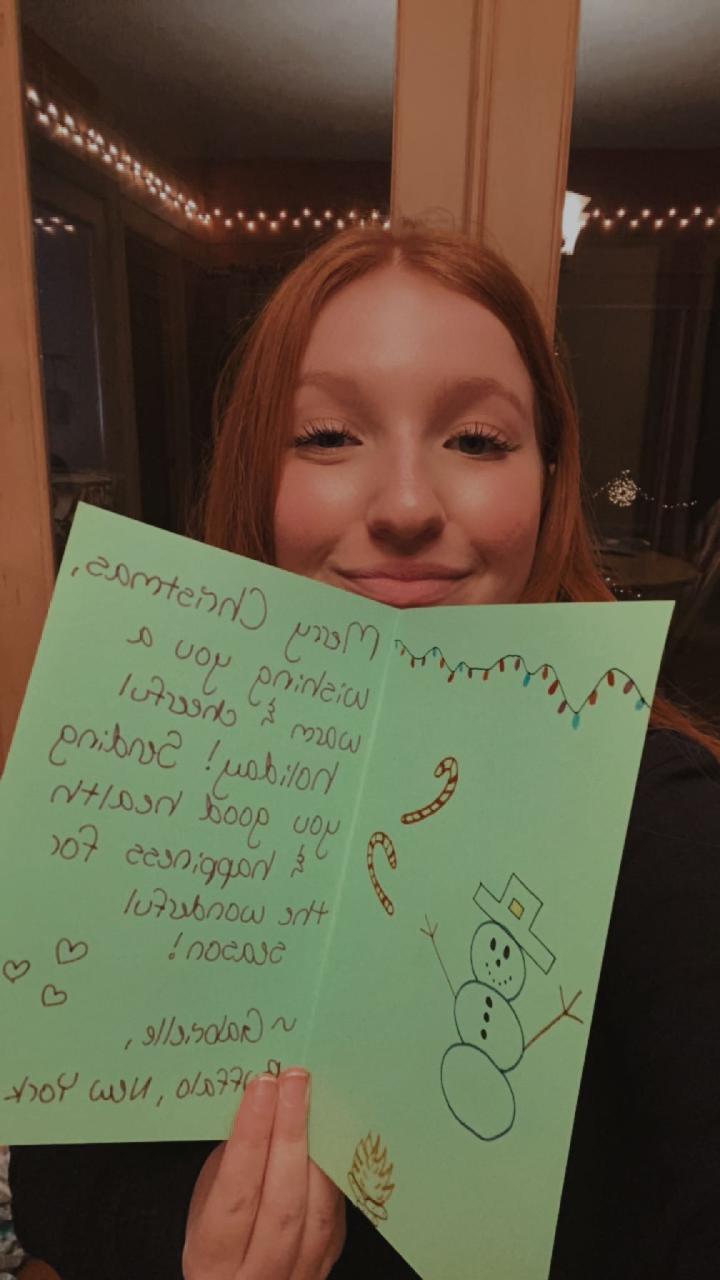 Merry Christmas,
wishing you a
warm & cheerful
holiday! Sending
you good health
& happiness for
the wonderful
season!
~ Gabrielle,
Buffalo, New York